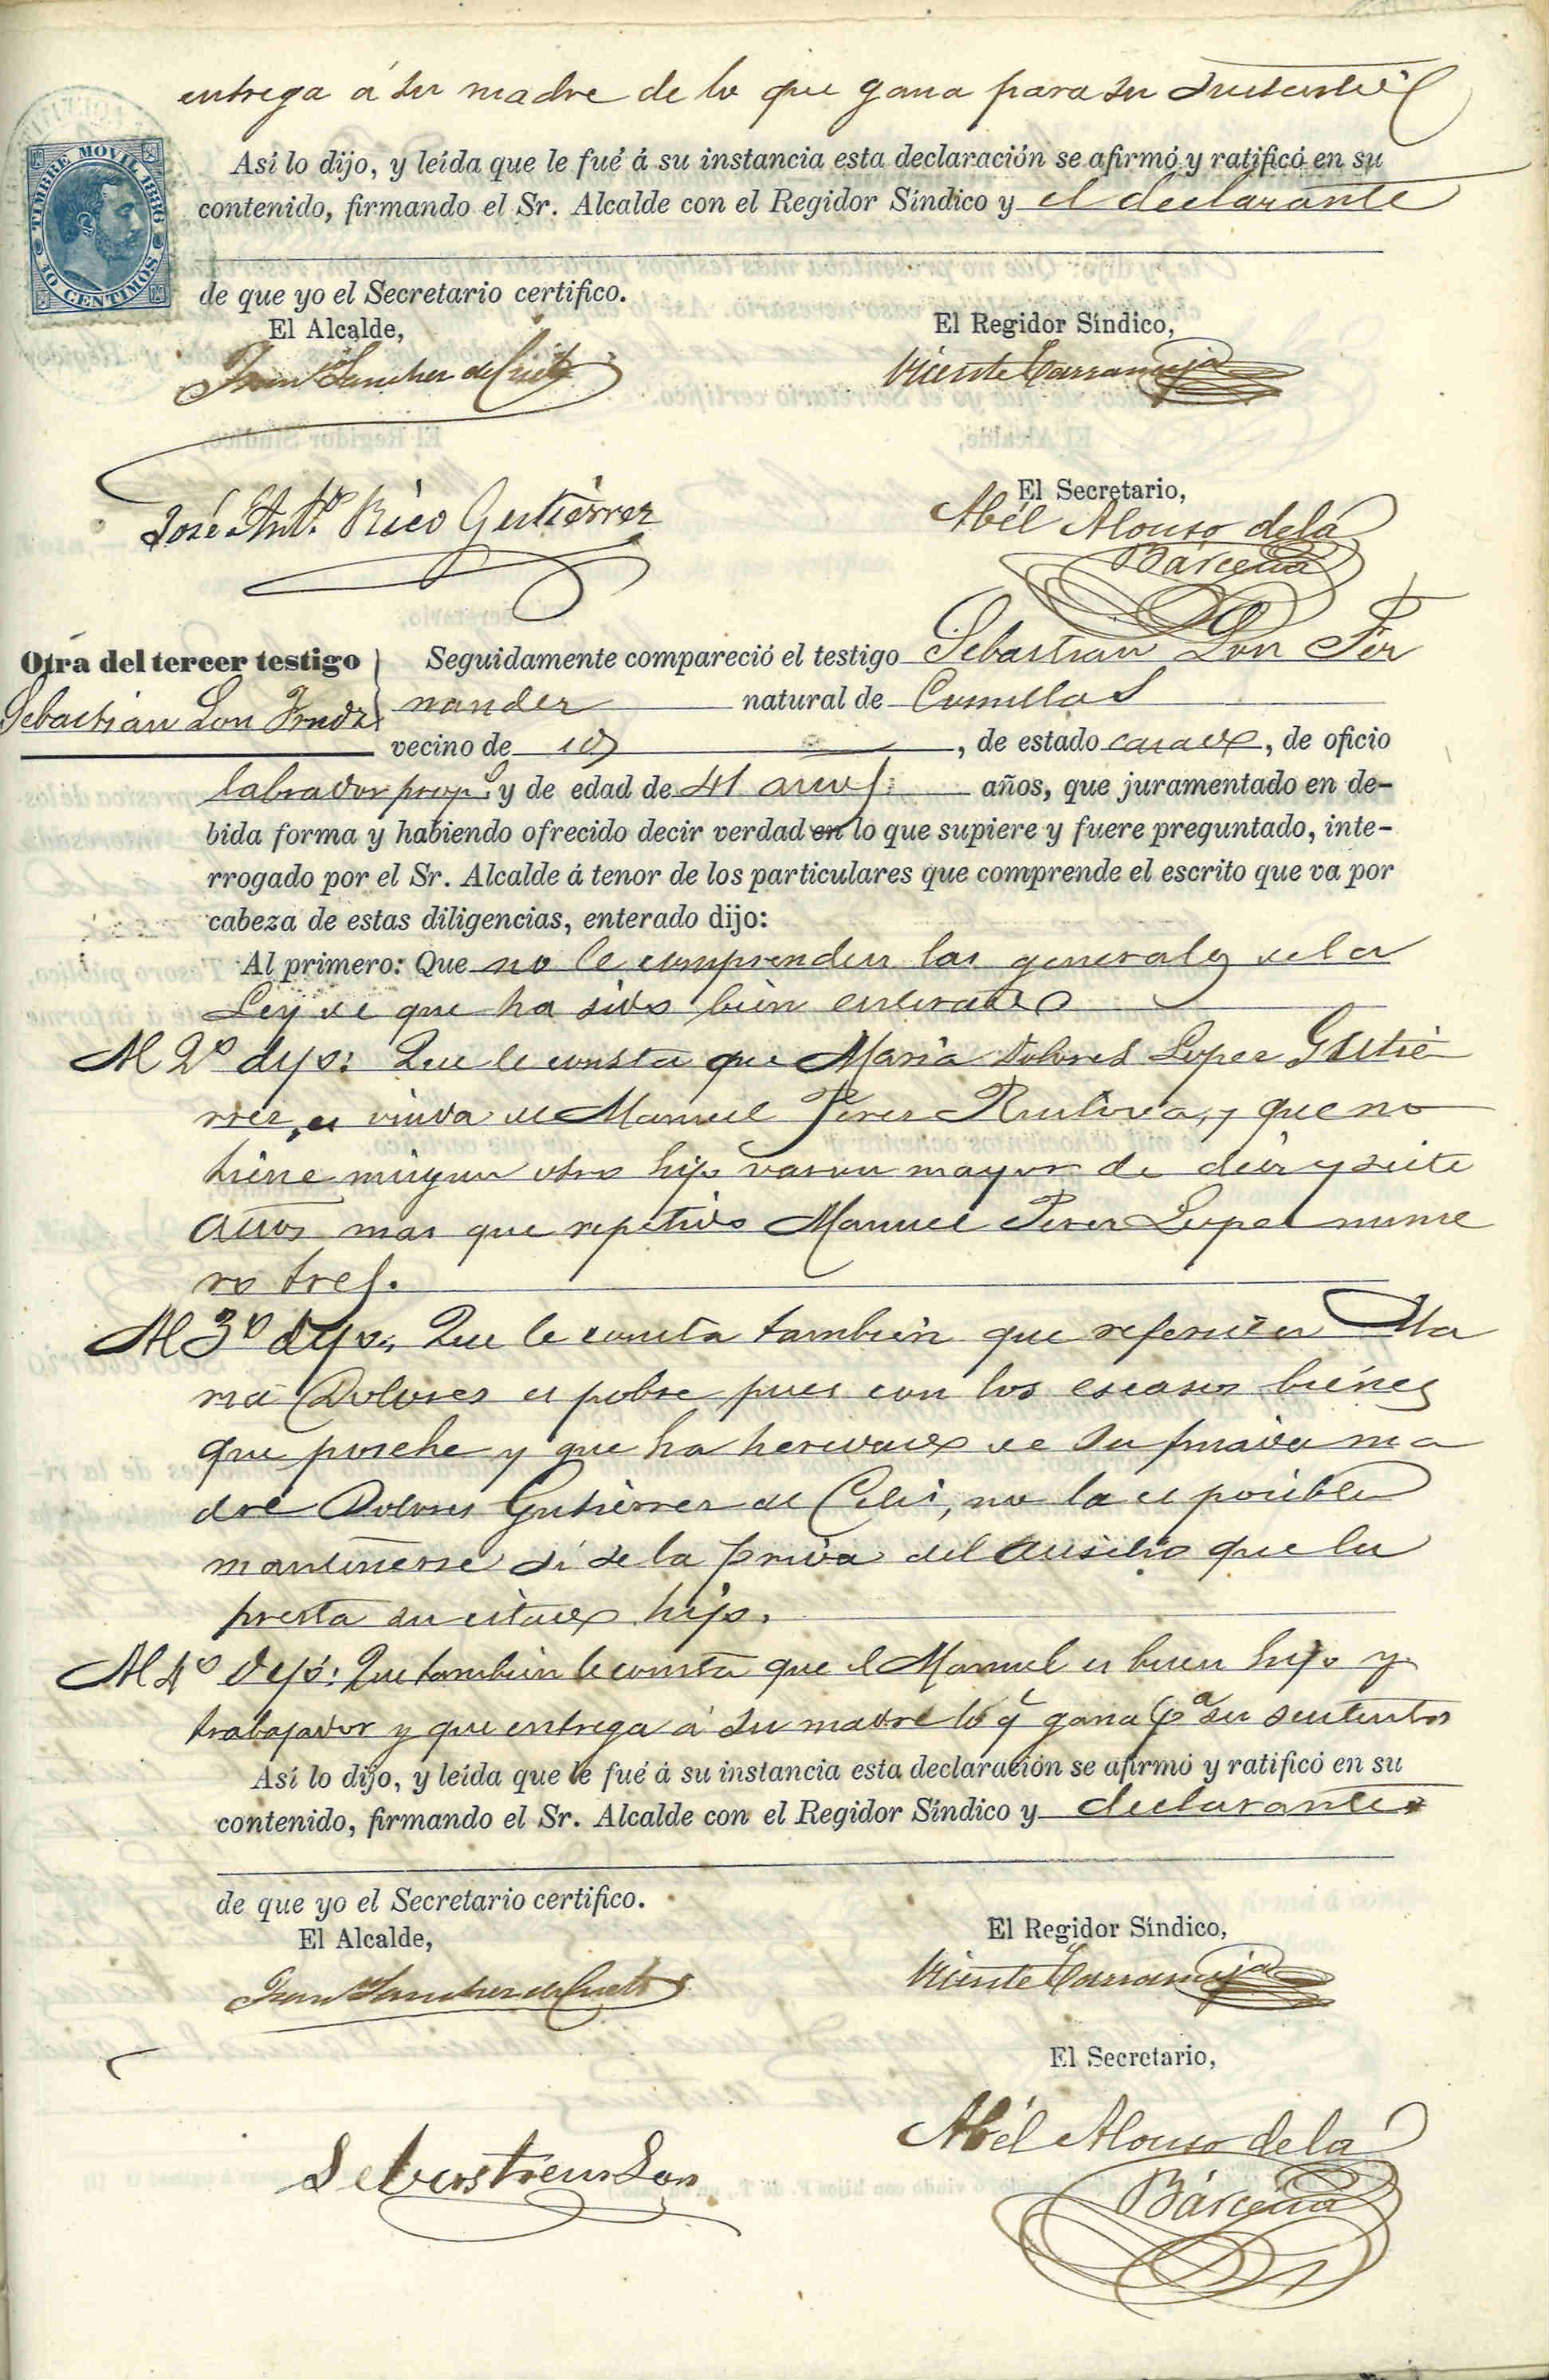 entrega á su madre de lo que gana para su sustento
TIMBRE MOVIL 1886
10 CENTIMOS
Así lo dijo, y leída que le fué á su instancia esta declaración se afirmó y ratificó en su
contenido, firmando el Sr. Alcalde con el Regidor Síndico y el declarante
de que yo el Secretario certifico.
El Alcalde,
El Regidor Síndico,
Juan Sanchez de Cueto
Vicente
El Secretario,
José Antº Rico Gutiérrez
Abél Alonso de la
Bárcena
Otra del tercer testigo
Sebastian Lon Frndz
Seguidamente compareció el testigo Sebastian Lon Fer
nandez natural de Comillas
vecino de id, de estado casado, de oficio
labrador prop. y de edad de 41 años años, que juramentado en de-
bida forma y habiendo ofrecido decir verdad en lo que supiere y fuere preguntado, inte-
rrogado por el Sr. Alcalde á tenor de los particulares que comprende el escrito que va por
cabeza de estas diligencias, enterado dijo:
Al primero: Que no le comprenden las generales de la
Ley de que ha sido bien enterado
Al 2º dijo: Que le consta que Maria Dolores Lopez Gutié
rrez, es viuda de Manuel Perez y que no
tiene ningun otro hijo varon mayor de diez y siete
años mas que repetido Manuel Perez Lopez nume
ro tres.
Al 3º dijo: Que le consta tambien que referida Ma
ria Dolores es pobre pues con los escasos bienes
que posehe y que ha heredado de su finada ma
dre Dolores Gutierrez de Celis, no la es posible
mantenerse si se la priva del ausilio que la
presta su citado hijo.
Al 4º dijo: Que tambien le consta que el Manuel es buen hijo y
trabajador y que entrega á su madre lo q gana pª su sustento
Así lo dijo, y leída que le fué á su instancia esta declaración se afirmó y ratificó en su
contenido, firmando el Sr. Alcalde con el Regidor Síndico y declarante
de que yo el Secretario certifico.
El Alcalde,
El Regidor Síndico,
Juan Sanchez de Cueto
Vicente
El Secretario,
Sebastian Lon
Abél Alonso de la
Bárcena